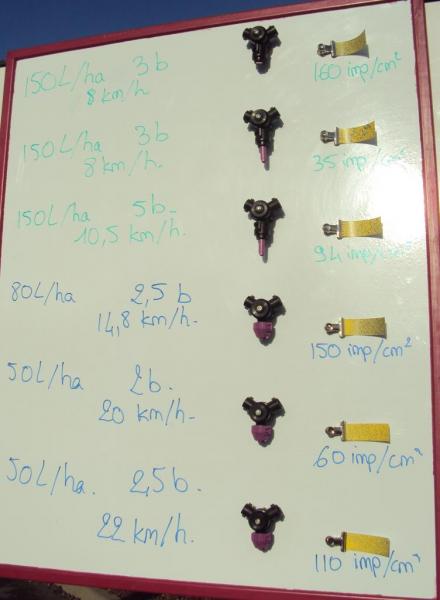 150L/ha 3b
8 km/h. 160 imp/cm²
150L/ha 3b
8 km/h. 35 imp/cm²
150L/ha 5b-
10,5 km/h. 94 imp/cm²
80L/ha 2,5 b
14,8 km/h- 150 imp/cm²
50L/ha 2b.
20 km/h- 60 imp/cm²
50L/ha. 2,5b.
22 km/h. 110 imp/cm²